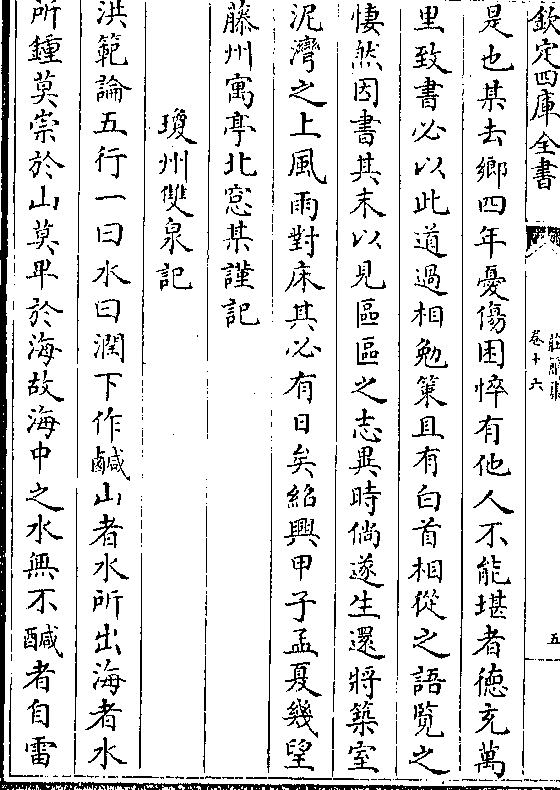 欽定四庫全書
卷十六
五
是也某去鄉四年憂傷困悴有他人不能堪者德充萬
里致書必以此道過相勉策且有白首相從之語覽之
悽然因書其末以見區區之志異時倘遂生還將築室
泥灣之上風雨對床其必有日矣紹興甲子孟夏幾望
藤州寓亭北窓某謹記
瓊州雙泉記
洪範論五行一曰水曰潤下作鹹山者水所出海者水
所鍾莫崇於山莫卑於海故海中之水無不鹹者自雷